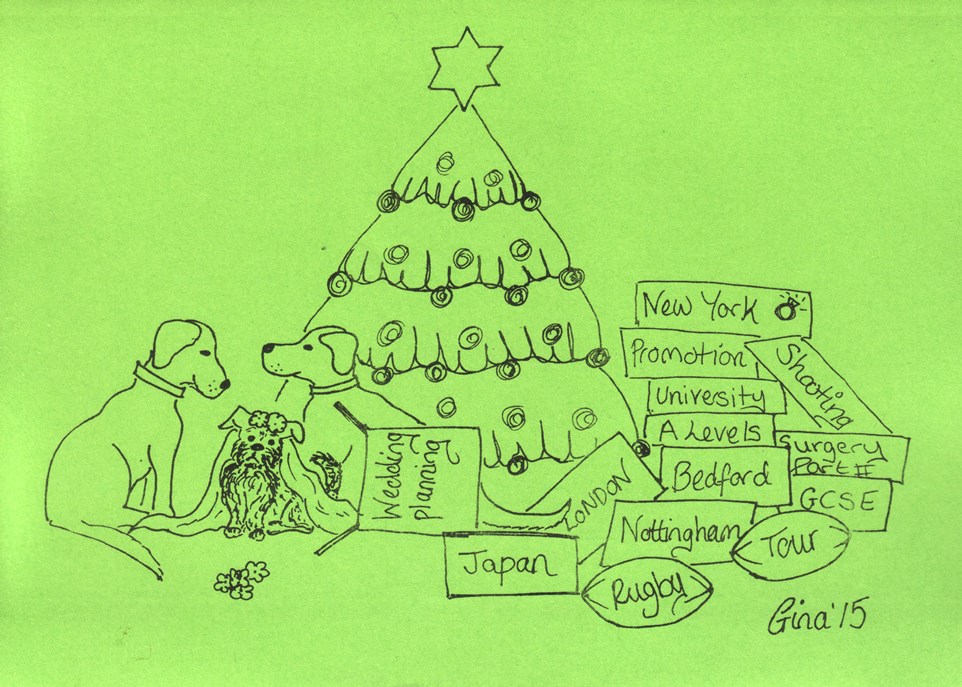 New York
Promotion
Shooting
University
A Levels
Surgery
Part II
Wedding
planning
LONDON
Bedford
GCSE
Nottingham
Tour
Japan
Rugby
Gina '15